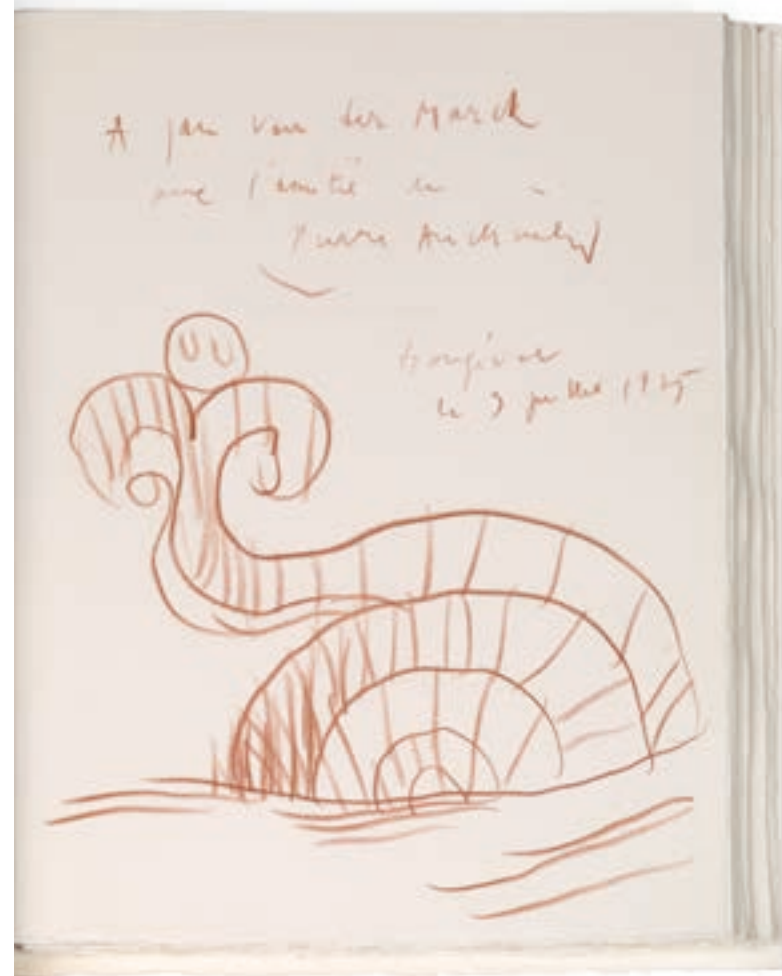 A Jan van der Marck
avec l'amitié de
Pierre Alechinsky
Bougival
le 9 juillet 19